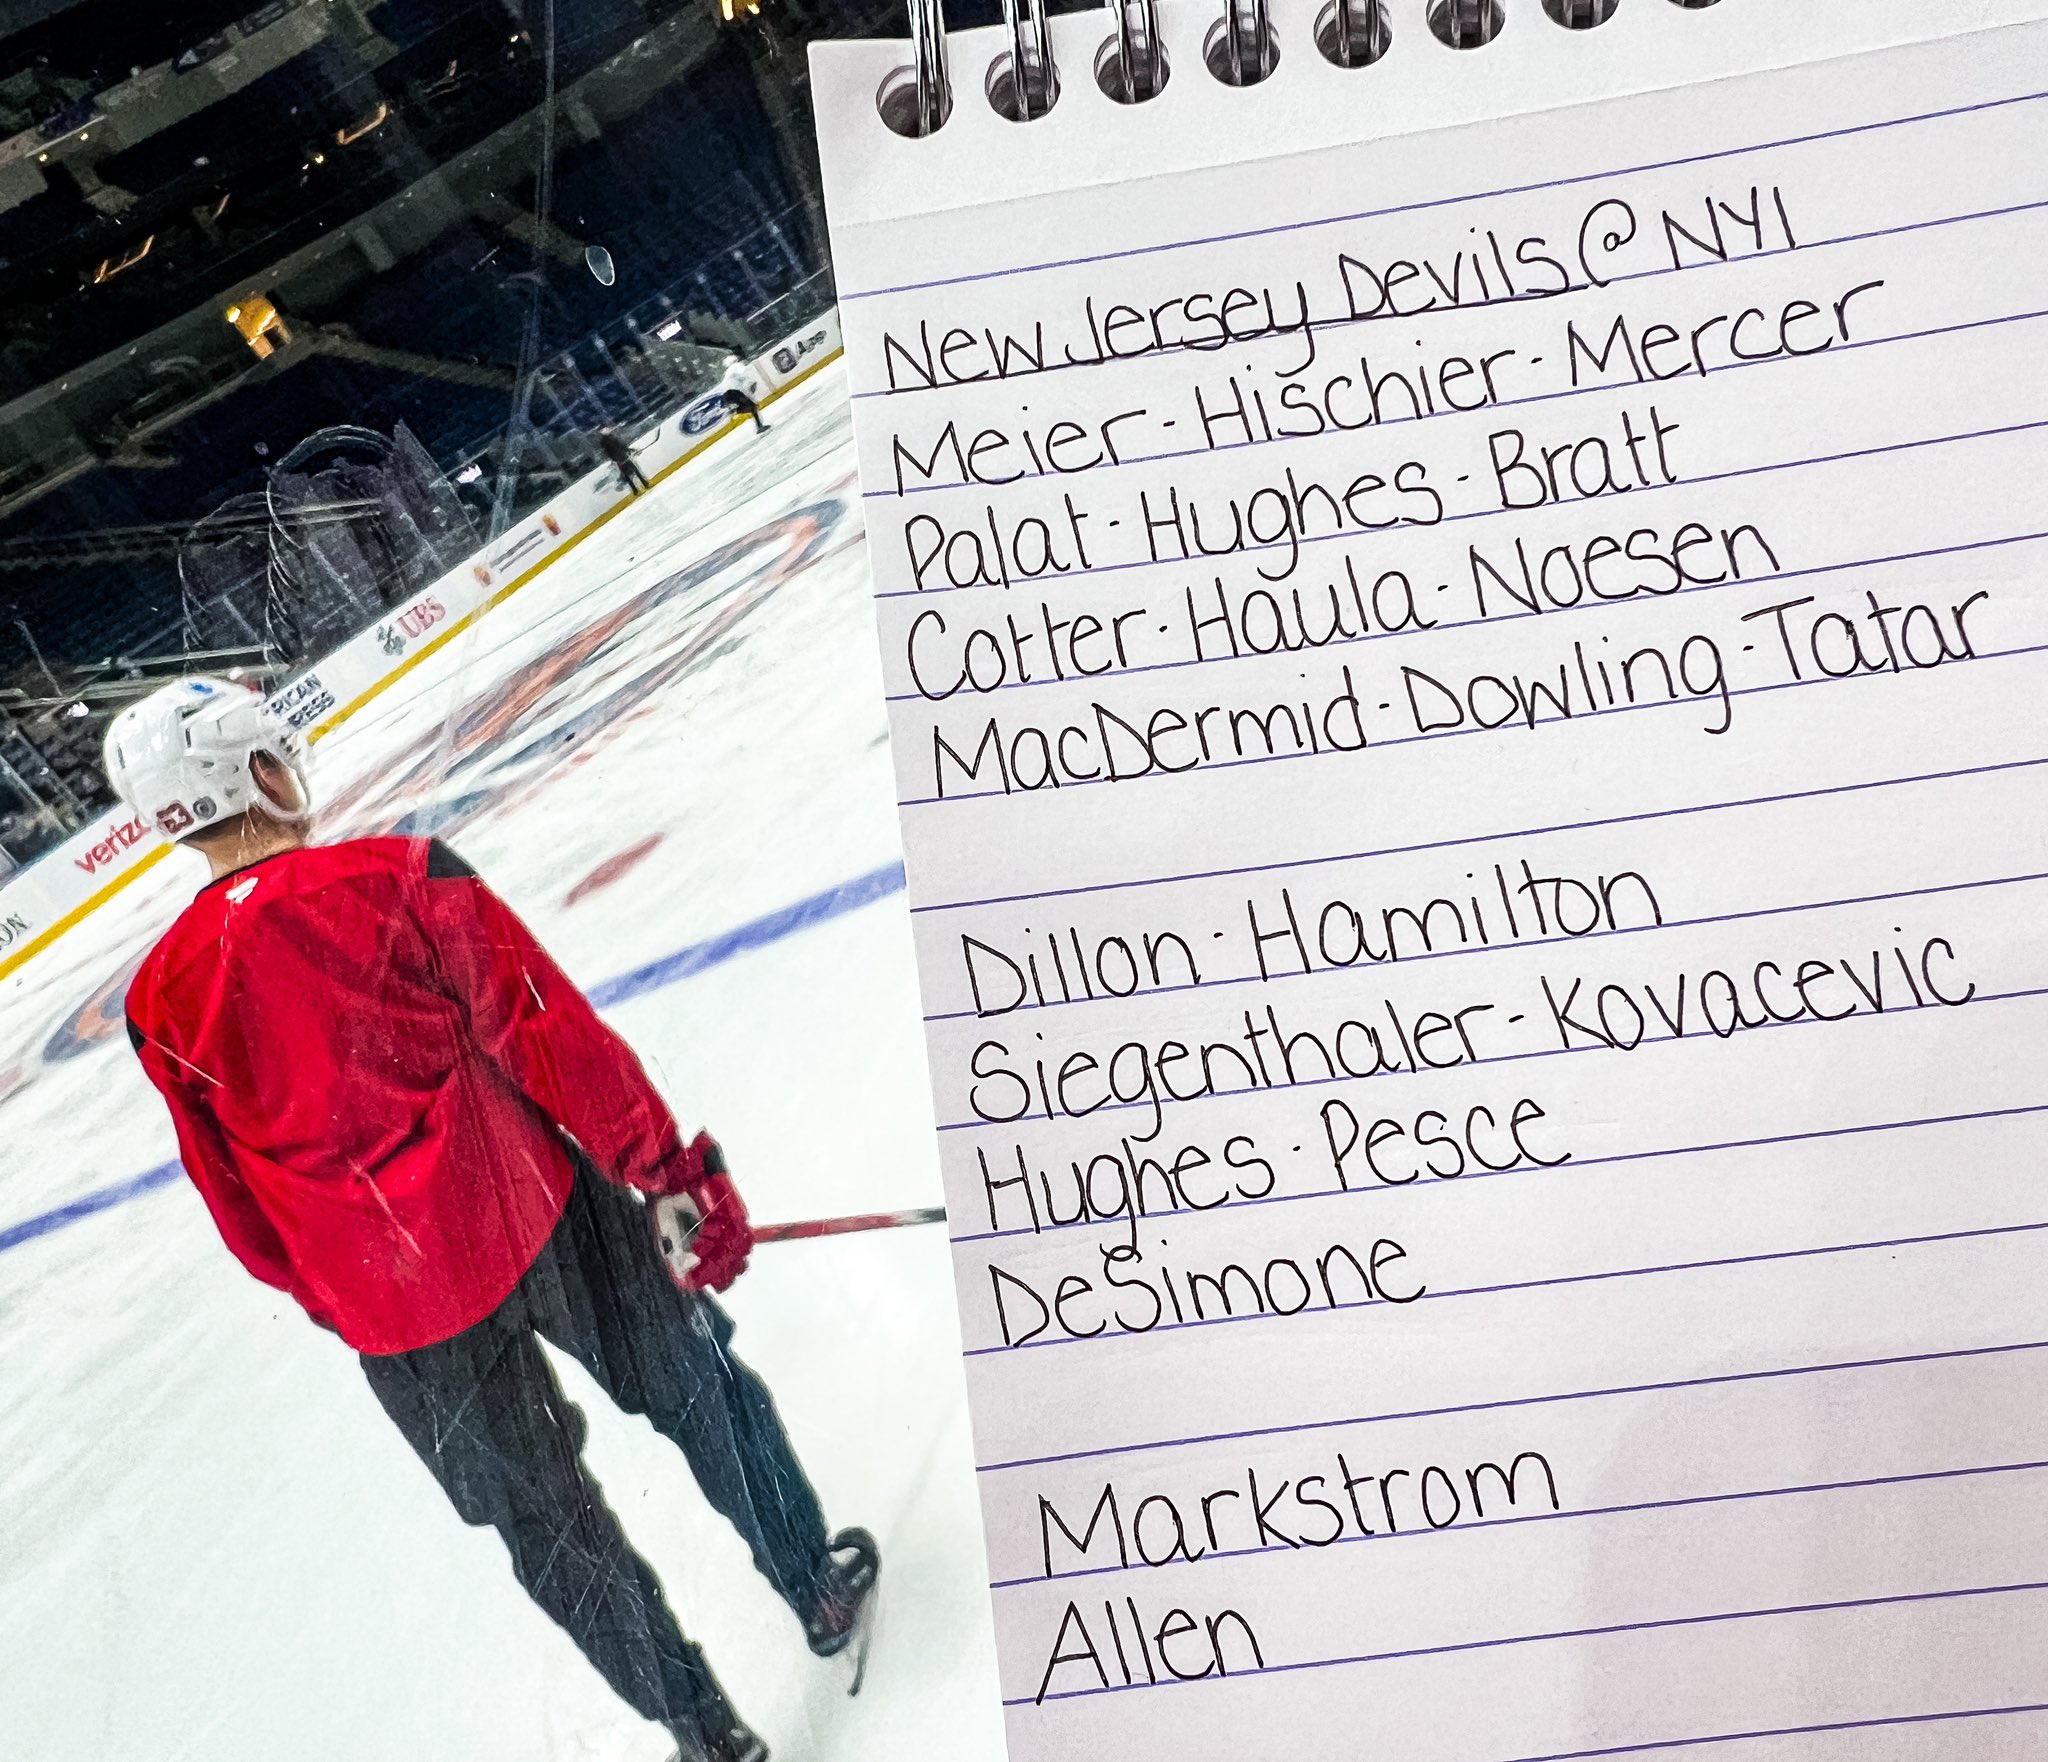 New Jersey Devils @ NYI
Meier - Hischier - Mercer
Palat - Hughes - Bratt
Cotter - Haula - Noesen
MacDermid - Dowling - Tatar
Dillon - Hamilton
Siegenthaler - Kovacevic
Hughes - Pesce
DeSimone
Markstrom
Allen
Ford
UBS
RICAN
RESS
verizo
63
ON